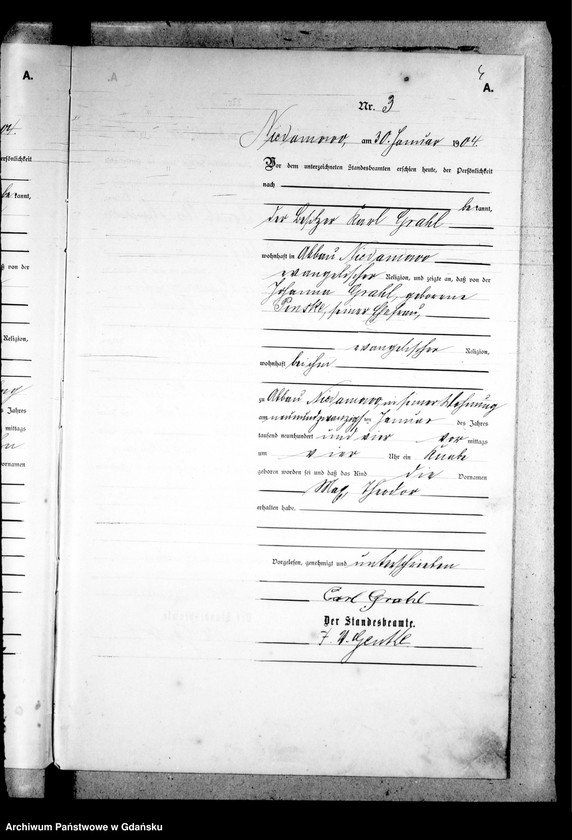 A.
4
A.
Nr. 3
Niedamowo, am 30. Januar 1904
Vor dem unterzeichneten Standesbeamten erschien heute, der Persönlichkeit
nach
bekannt,
der Besitzer Karl Grahl
wohnhaft in Abbau Niedamowo
evangelischer Religion, und zeigte an, daß von der
Johanna Grahl, geborene
Penske, seiner Ehefrau,
evangelischer Religion,
wohnhaft bei ihm
zu Abbau Niedamowo, in seiner Wohnung
am neunundzwanzigsten Januar des Jahres
tausend neunhundert und vier vormittags
um vier Uhr ein Knabe
geboren worden sei und daß das Kind die Vornamen
Max Theodor
erhalten habe.
Vorgelesen, genehmigt und unterschrieben
Carl Grahl
Der Standesbeamte.
Archiwum Państwowe w Gdańsku